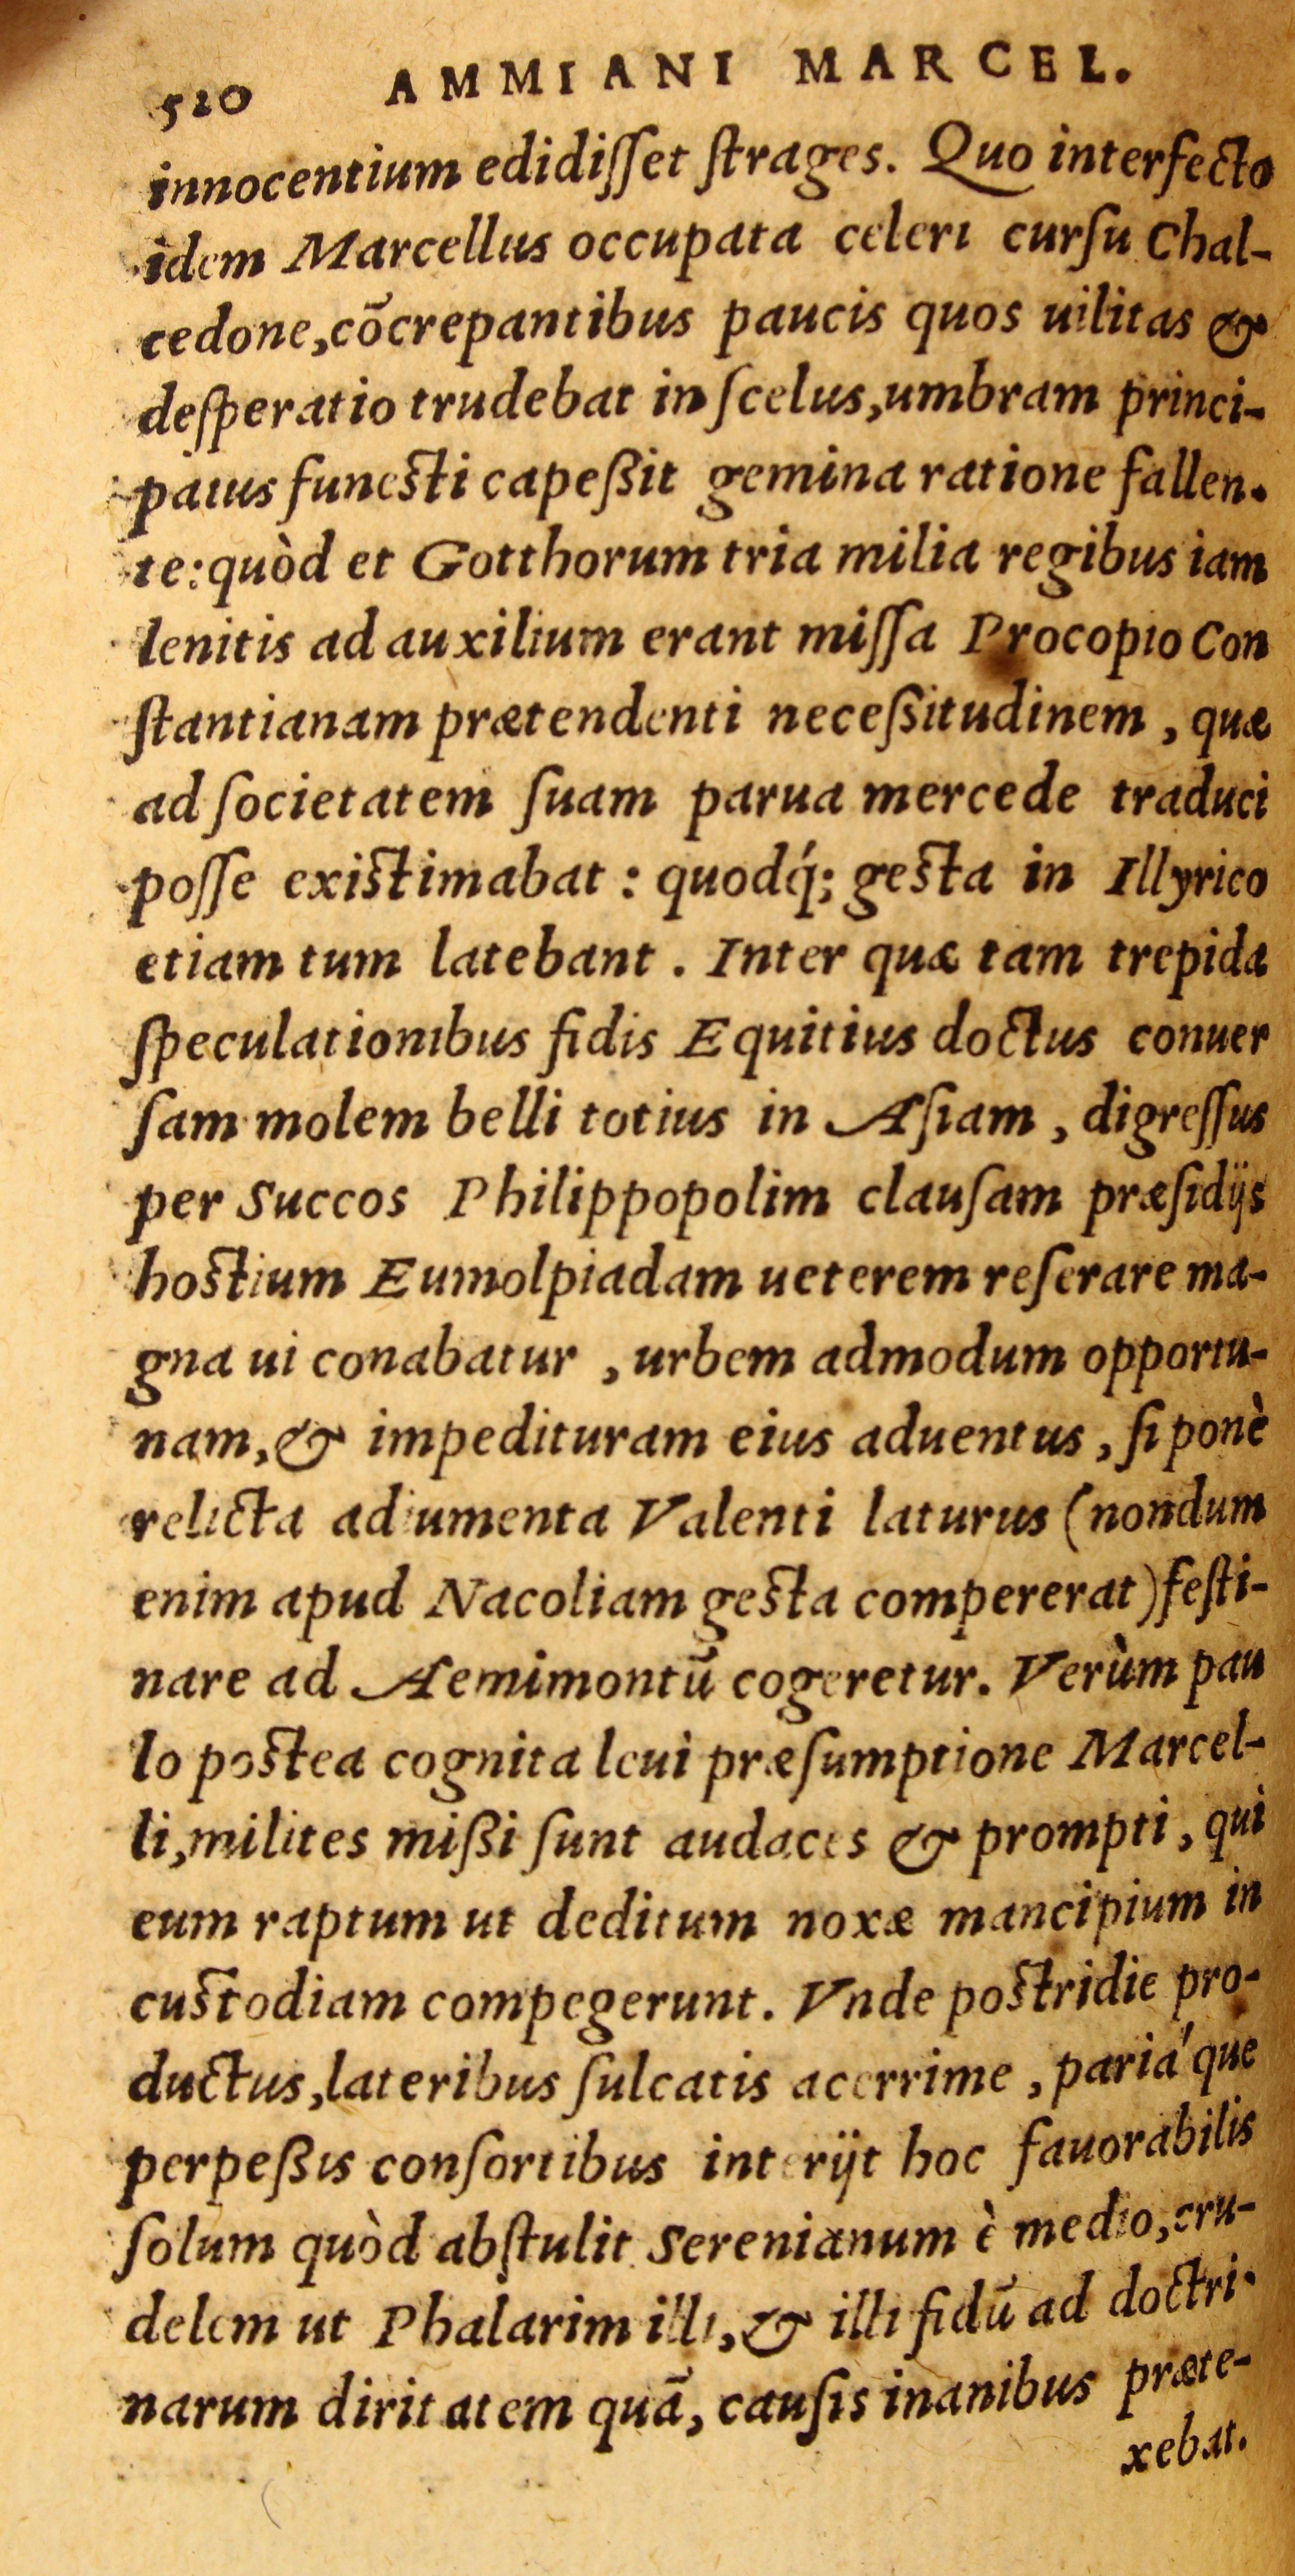 520 AMMIANI MARCEL.
innocentium edidiſſet ſtrages. Quo interfecto
idem Marcellus occupata celeri curſu Chal-
cedone,cōcrepantibus paucis quos uilitas &
deſperatio trudebat in ſcelus,umbram princi-
patus funeſti capeßit gemina ratione fallen-
te:quòd et Gotthorum tria milia regibus iam
lenitis ad auxilium erant miſſa Procopio Con
ſtantianam prætendenti neceßitudinem , quæ
ad ſocietatem ſuam parua mercede traduci
poſſe exiſtimabat : quodq́; geſta in Illyrico
etiam tum latebant . Inter quæ tam trepida
ſpeculationibus fidis Equitius doctus conuer
ſam molem belli totius in Aſiam , digreſſus
per Succos Philippopolim clauſam præſidijs
hoſtium Eumolpiadam ueterem reſerare ma-
gna ui conabatur , urbem admodum opportu-
nam,& impedituram eius aduentus , ſi ponè
relicta adiumenta Valenti laturus (nondum
enim apud Nacoliam geſta compererat)feſti-
nare ad Aemimontū cogeretur. Verùm pau
lo poſtea cognita leui præſumptione Marcel-
li,milites mißi ſunt audaces & prompti , qui
eum raptum ut deditum noxæ mancipium in
cuſtodiam compegerunt. Vnde poſtridie pro-
ductus,lateribus ſulcatis acerrime , pariá que
perpeßis conſortibus interijt hoc fauorabilis
ſolum quòd abſtulit Serenianum è medio,cru-
delem ut Phalarim illi,& illi fidū ad doctri-
narum diritatem quā, cauſis inanibus præte-
xebat.